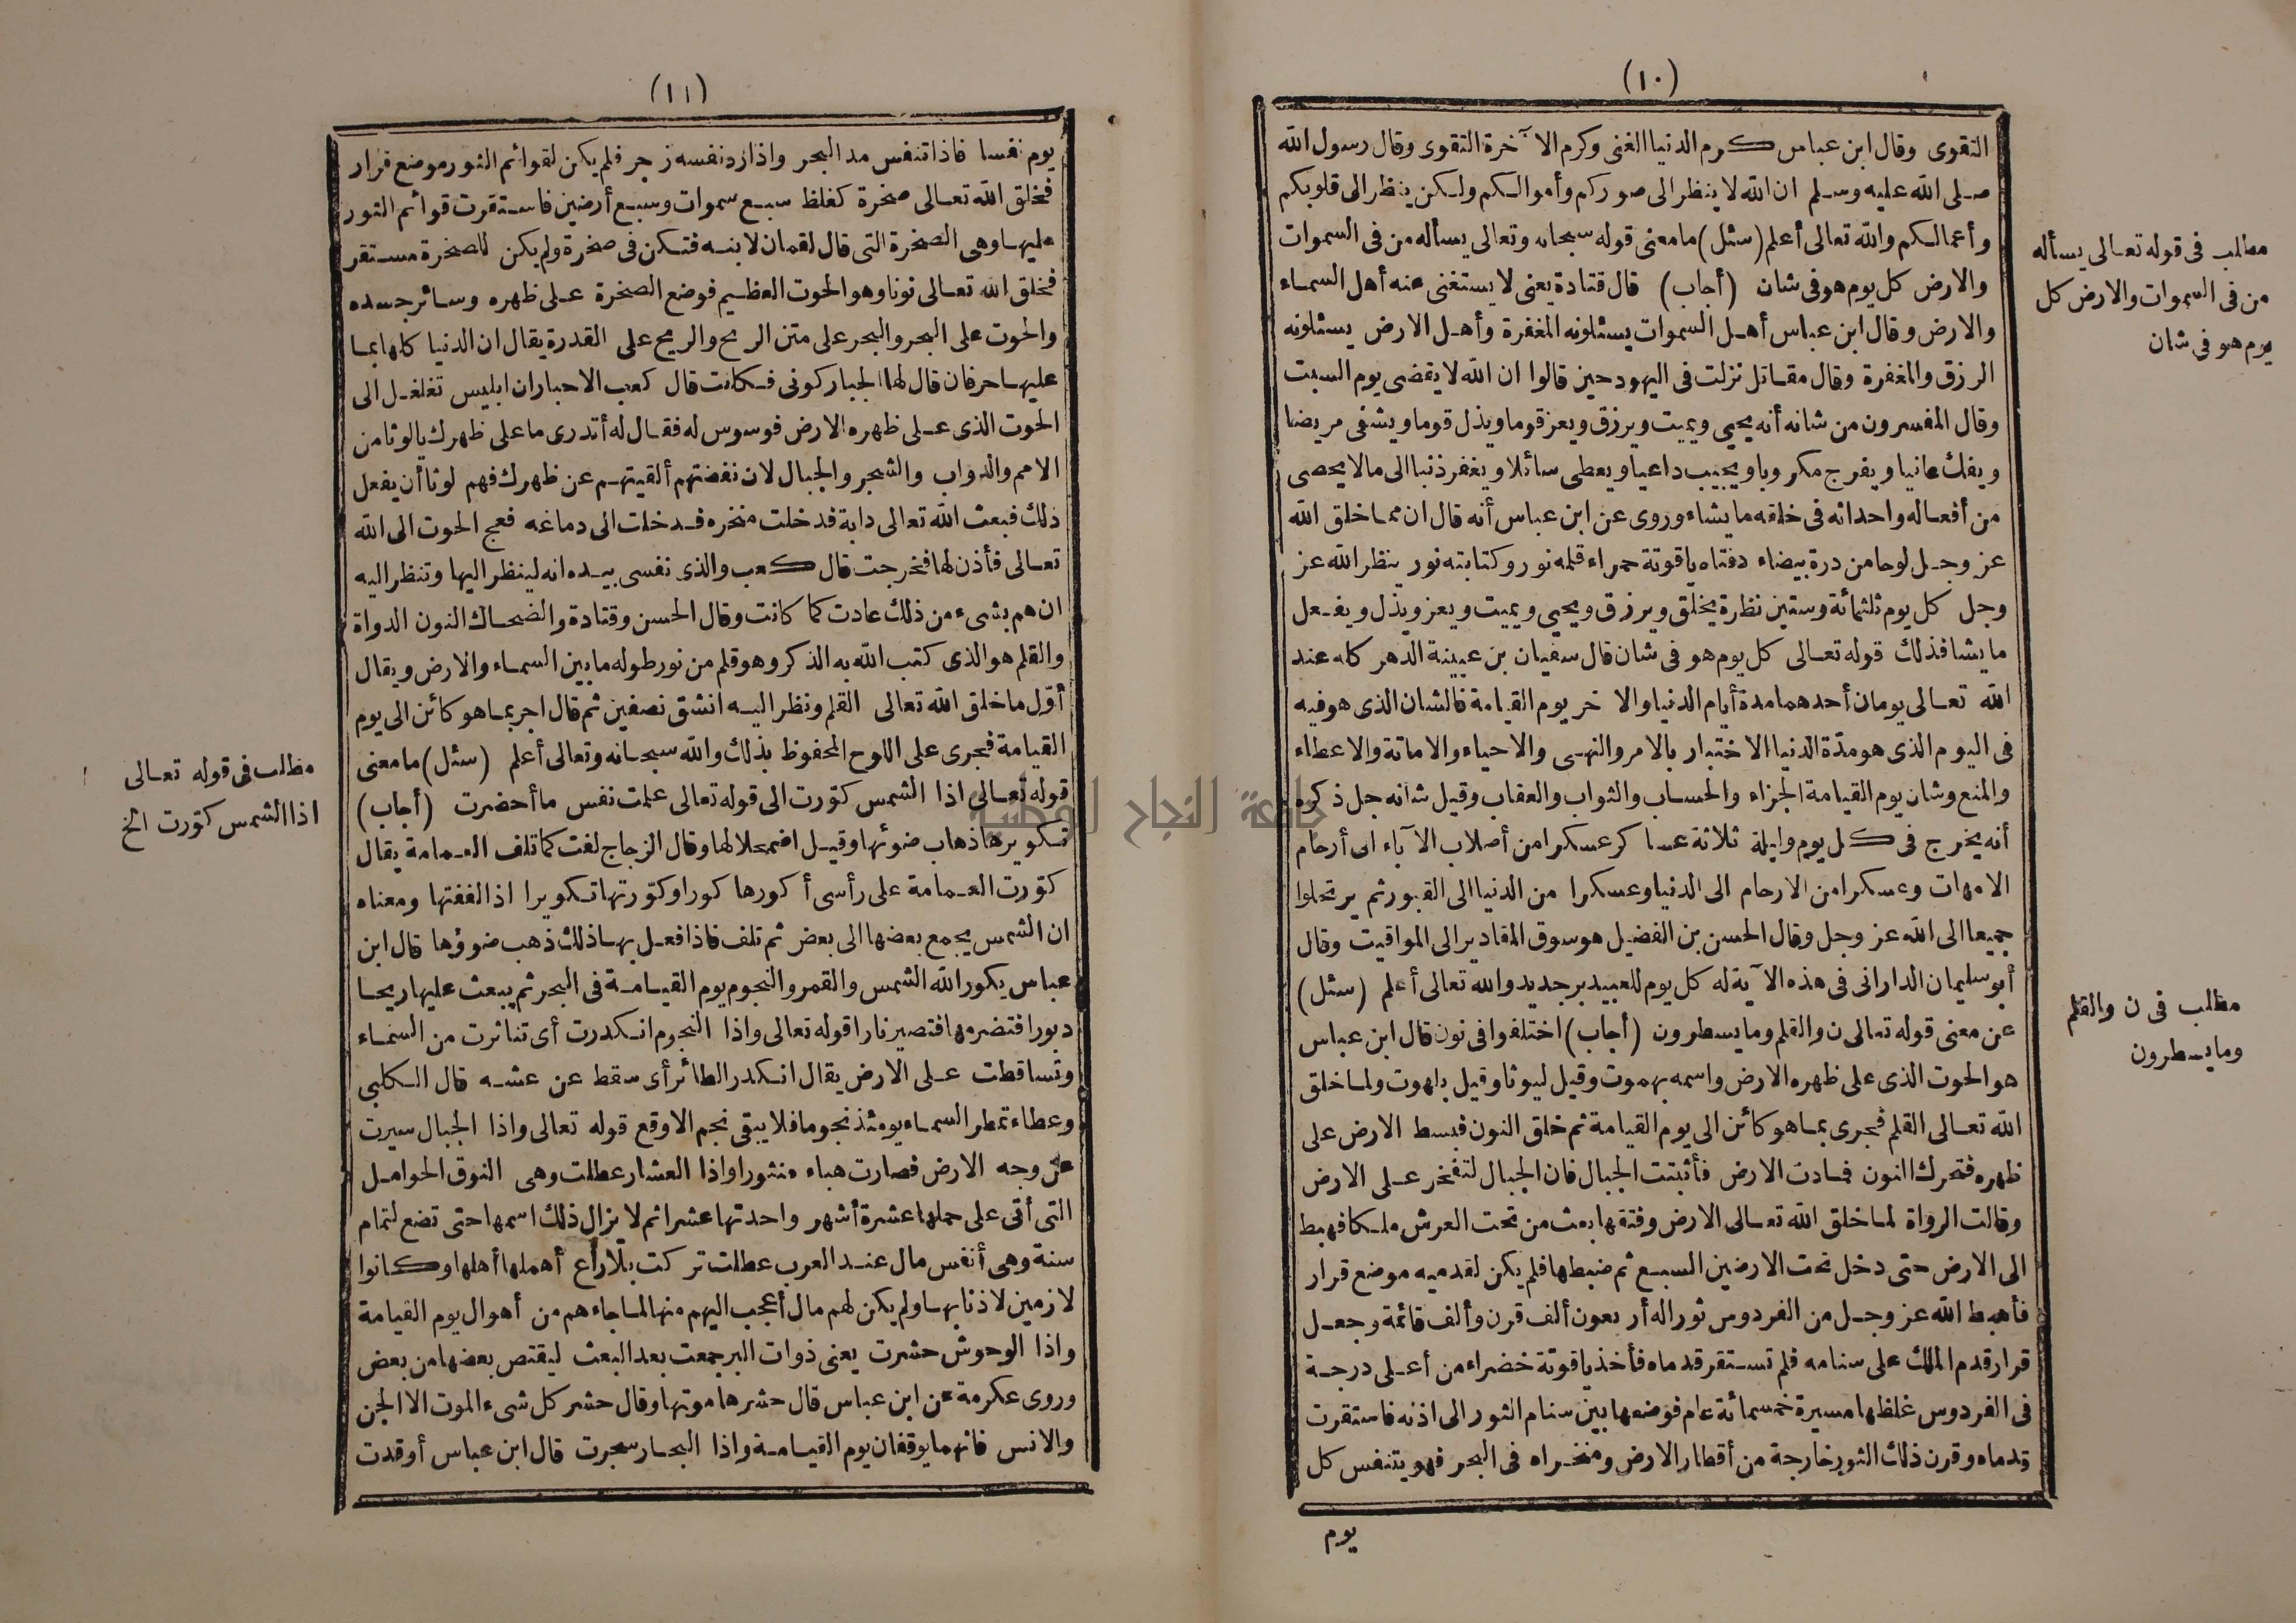 (١٠)
التقوى وقال ابن عباس كرم الدنيا الغنى وكرم الآخرة التقوى وقال رسول الله
صلى الله عليه وسلم ان الله لا ينظر الى صوركم وأموالكم ولكن ينظر الى قلوبكم
وأعمالكم والله تعالى أعلم (سئل) ما معنى قوله سبحانه وتعالى يسأله من فى السموات
والارض كل يوم هو فى شان (أجاب) قال قتادة يعنى لا يستغنى عنه أهل السماء
والارض وقال ابن عباس أهل السموات يسئلونه المغفرة وأهل الارض يسئلونه
الرزق والمغفرة وقال مقاتل نزلت فى اليهود حين قالوا ان الله لا يقضى يوم السبت
وقال المفسرون من شانه أنه يحيى ويميت ويرزق ويعز قوما ويذل قوما ويشفى مريضا
ويفك عانيا ويفرج مكروبا ويجيب داعيا ويعطى سائلا ويغفر ذنبا الى مالا يحصى
من أفعاله واحداثه فى خلقه ما يشاء وروى عن ابن عباس أنه قال ان مما خلق الله
عز وجل لوحا من درة بيضاء دفتاه ياقوتة حمراء قلمه نور وكتابته نور ينظر الله عز
وجل كل يوم ثلثمائة وستين نظرة يخلق ويرزق ويحيى ويميت ويعز ويذل ويفعل
ما يشا فذلك قوله تعالى كل يوم هو فى شان قال سفيان بن عيينة الدهر كله عند
الله تعالى يومان أحدهما مدة أيام الدنيا والاخر يوم القيامة فالشان الذى هو فيه
فى اليوم الذى هو مدّة الدنيا الاختبار بالامر والنهى والاحياء والاماتة والاعطاء
والمنع وشان يوم القيامة الجزاء والحساب والثواب والعقاب وقيل شانه جل ذكره
أنه يخرج فى كل يوم وليلة ثلاثة عساكر عسكرا من أصلاب الآباء الى أرحام
الامهات وعسكرا من الارحام الى الدنيا وعسكرا من الدنيا الى القبور ثم يرتحلوا
جميعا الى الله عز وجل وقال الحسن بن الفضيل هو سوق المقادير الى المواقيت وقال
أبو سليمان الدارانى فى هذه الآية له كل يوم للعبيد بر جديد والله تعالى أعلم (سئل)
عن معنى قوله تعالى ن والقلم وما يسطرون (أجاب) اختلفوا فى نون قال ابن عباس
هو الحوت الذى على ظهره الارض واسمه بهموت وقيل ليوثا وقيل بلهوت ولما خلق
الله تعالى القلم فجرى بما هو كائن الى يوم القيامة ثم خلق النون فبسط الارض على
ظهره فتحرك النون فمادت الارض فأثبتت الجبال فان الجبال لتفخر على الارض
وقالت الرواة لما خلق الله تعالى الارض وفتقها بعث من تحت العرش ملكا فهبط
الى الارض حتى دخل تحت الارضين السبع ثم ضبطها فلم يكن لقدميه موضع قرار
فأهبط الله عز وجل من الفردوس ثورا له أربعون ألف قرن وألف قائمة وجعل
قرار قدم الملك على سنامه فلم تستقر قدماه فأخذ ياقوتة خضراء من أعلى درجة
فى الفردوس غلظها مسيرة خمسمائة عام فوضعها بين سنام الثور الى اذنه فاستقرت
قدماه وقرن ذلك الثور خارجة من أقطار الارض ومنخراه فى البحر فهو يتنفس كل
يوم
مطلب فى قوله تعالى يسأله
من فى السموات والارض كل
يوم هو فى شان
مطلب فى ن والقلم
وما يسطرون
(١١)
يوم نفسا فاذا تنفس مد البحر واذا رد نفسه زجر فلم يكن لقوائم الثور موضع قرار
فخلق الله تعالى صخرة كغلظ سبع سموات وسبع أرضين فاستقرت قوائم الثور
عليها وهى الصخرة التى قال لقمان لابنه فتكن فى صخرة ولم يكن للصخرة مستقر
فخلق الله تعالى نونا وهو الحوت العظيم فوضع الصخرة على ظهره وسائر جسده
والحوت على البحر والبحر على متن الريح والريح على القدرة يقال ان الدنيا كلها بما
عليها حرفان قال لها الجبار كونى فكانت قال كعب الاحبار ان ابليس تغلغل الى
الحوت الذى على ظهره الارض فوسوس له فقال له أتدرى ما على ظهرك يالوثا من
الامم والدواب والشجر والجبال لان نفضتهم ألقيتهم عن ظهرك فهم لوثا أن يفعل
ذلك فبعث الله تعالى دابة فدخلت منخره فدخلت الى دماغه فعج الحوت الى الله
تعالى فأذن لها فخرجت قال كعب والذى نفسى بيده انه لينظر اليها وتنظر اليه
ان هم بشىء من ذلك عادت كما كانت وقال الحسن وقتادة والضحاك النون الدواة
والقلم هو الذى كتب الله به الذكر وهو قلم من نور طوله ما بين السماء والارض ويقال
أوّل ما خلق الله تعالى القلم ونظر اليه انشق نصفين ثم قال اجر بما هو كائن الى يوم
القيامة فجرى على اللوح المحفوظ بذلك والله سبحانه وتعالى أعلم (سئل) ما معنى
قوله تعالى اذا الشمس كوّرت الى قوله تعالى علمت نفس ما أحضرت (أجاب)
تكويرها ذهاب ضوئها وقيل اضمحلالها وقال الزجاج لفت كما تلف العمامة يقال
كوّرت العمامة على رأسى أكورها كورا وكوّرتها تكويرا اذا لففتها ومعناه
ان الشمس يجمع بعضها الى بعض ثم تلف فاذا فعل بها ذلك ذهب ضوؤها قال ابن
عباس يكور الله الشمس والقمر والنجوم يوم القيامة فى البحر ثم يبعث عليها ريحا
دبورا فتضرمها فتصير نارا قوله تعالى واذا النجوم انكدرت أى تناثرت من السماء
وتساقطت على الارض يقال انكدر الطائر أى سقط عن عشه قال الكلبى
وعطاء تمطر السماء يومئذ نجوما فلا يبقى نجم الا وقع قوله تعالى واذا الجبال سيرت
عن وجه الارض فصارت هباء منثورا واذا العشار عطلت وهى النوق الحوامل
التى أتى على حملها عشرة أشهر واحدتها عشرا ثم لا يزال ذلك اسمها حتى تضع لتمام
سنة وهى أنفس مال عند العرب عطلت تركت بلا راع أهملها أهلها وكانوا
لازمين لاذنابها ولم يكن لهم مال أعجب اليهم منها لما جاءهم من أهوال يوم القيامة
واذا الوحوش حشرت يعنى ذوات البر جمعت بعد البعث ليقتص بعضها من بعض
وروى عكرمة عن ابن عباس قال حشرها موتها وقال حشر كل شىء الموت الا الجن
والانس فانهما يوقفان يوم القيامة واذا البحار سجرت قال ابن عباس أوقدت
مطلب فى قوله تعالى
اذا الشمس كوّرت الخ
جامعة النجاح الوطنية